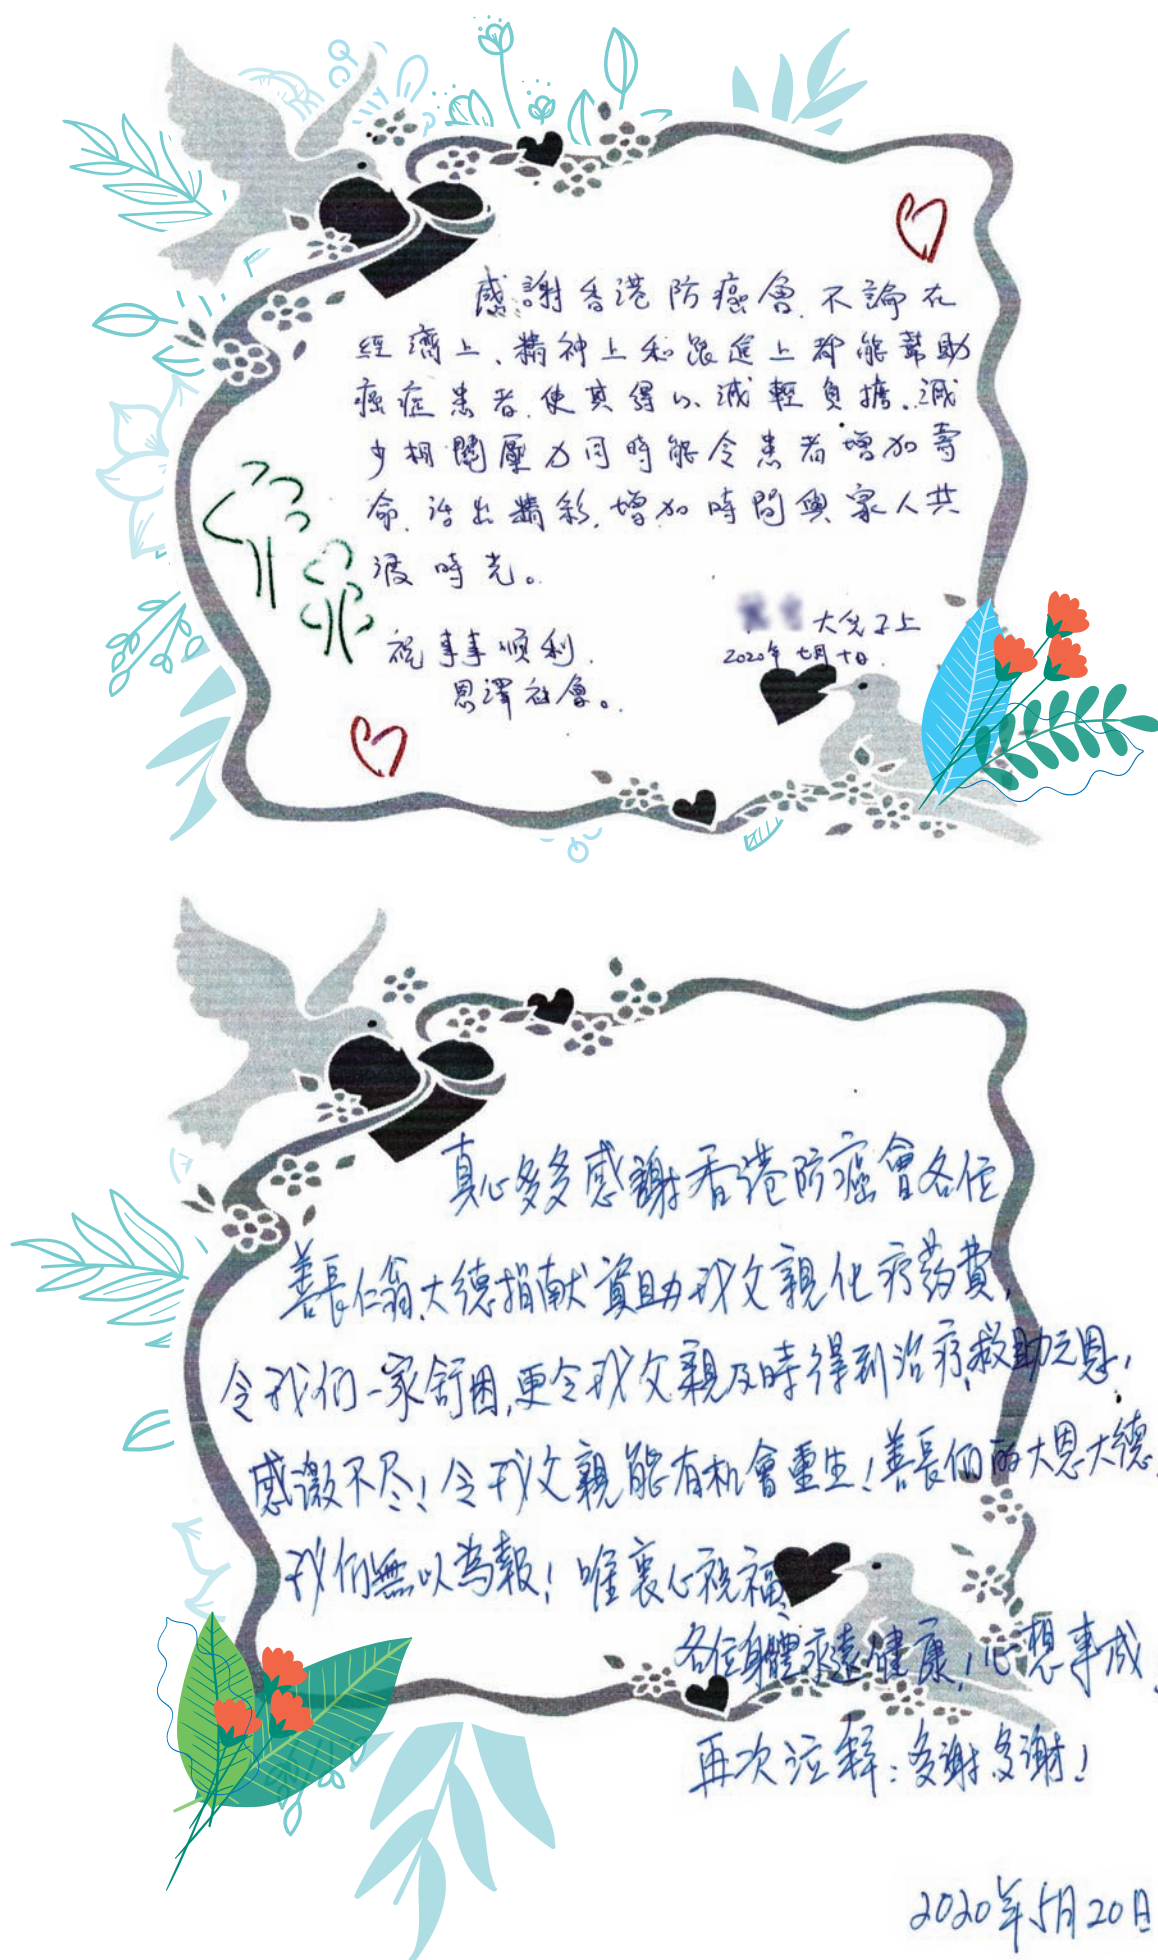 感謝香港防癌會.不論在
經濟上、精神上和跟進上都能幫助
癌症患者.使其得以減輕負擔.減
少相關壓力同時能令患者增加壽
命.活出精彩.增加時間與家人共
渡時光。
大兒子上
2020年七月十日.
祝事事順利.
恩澤社會。
真心多多感謝香港防癌會各位
善長仁翁大德捐献資助我父親化疗药費,
令我们一家舒困,更令我父親及時得到治疗,救助之恩,
感激不尽!令我父親能有机會重生!善長们的大恩大德,
我们無以為報!唯衷心祝福
各位身體永遠健康,心想事成,
再次注釋:多謝多謝!
2020年5月20日